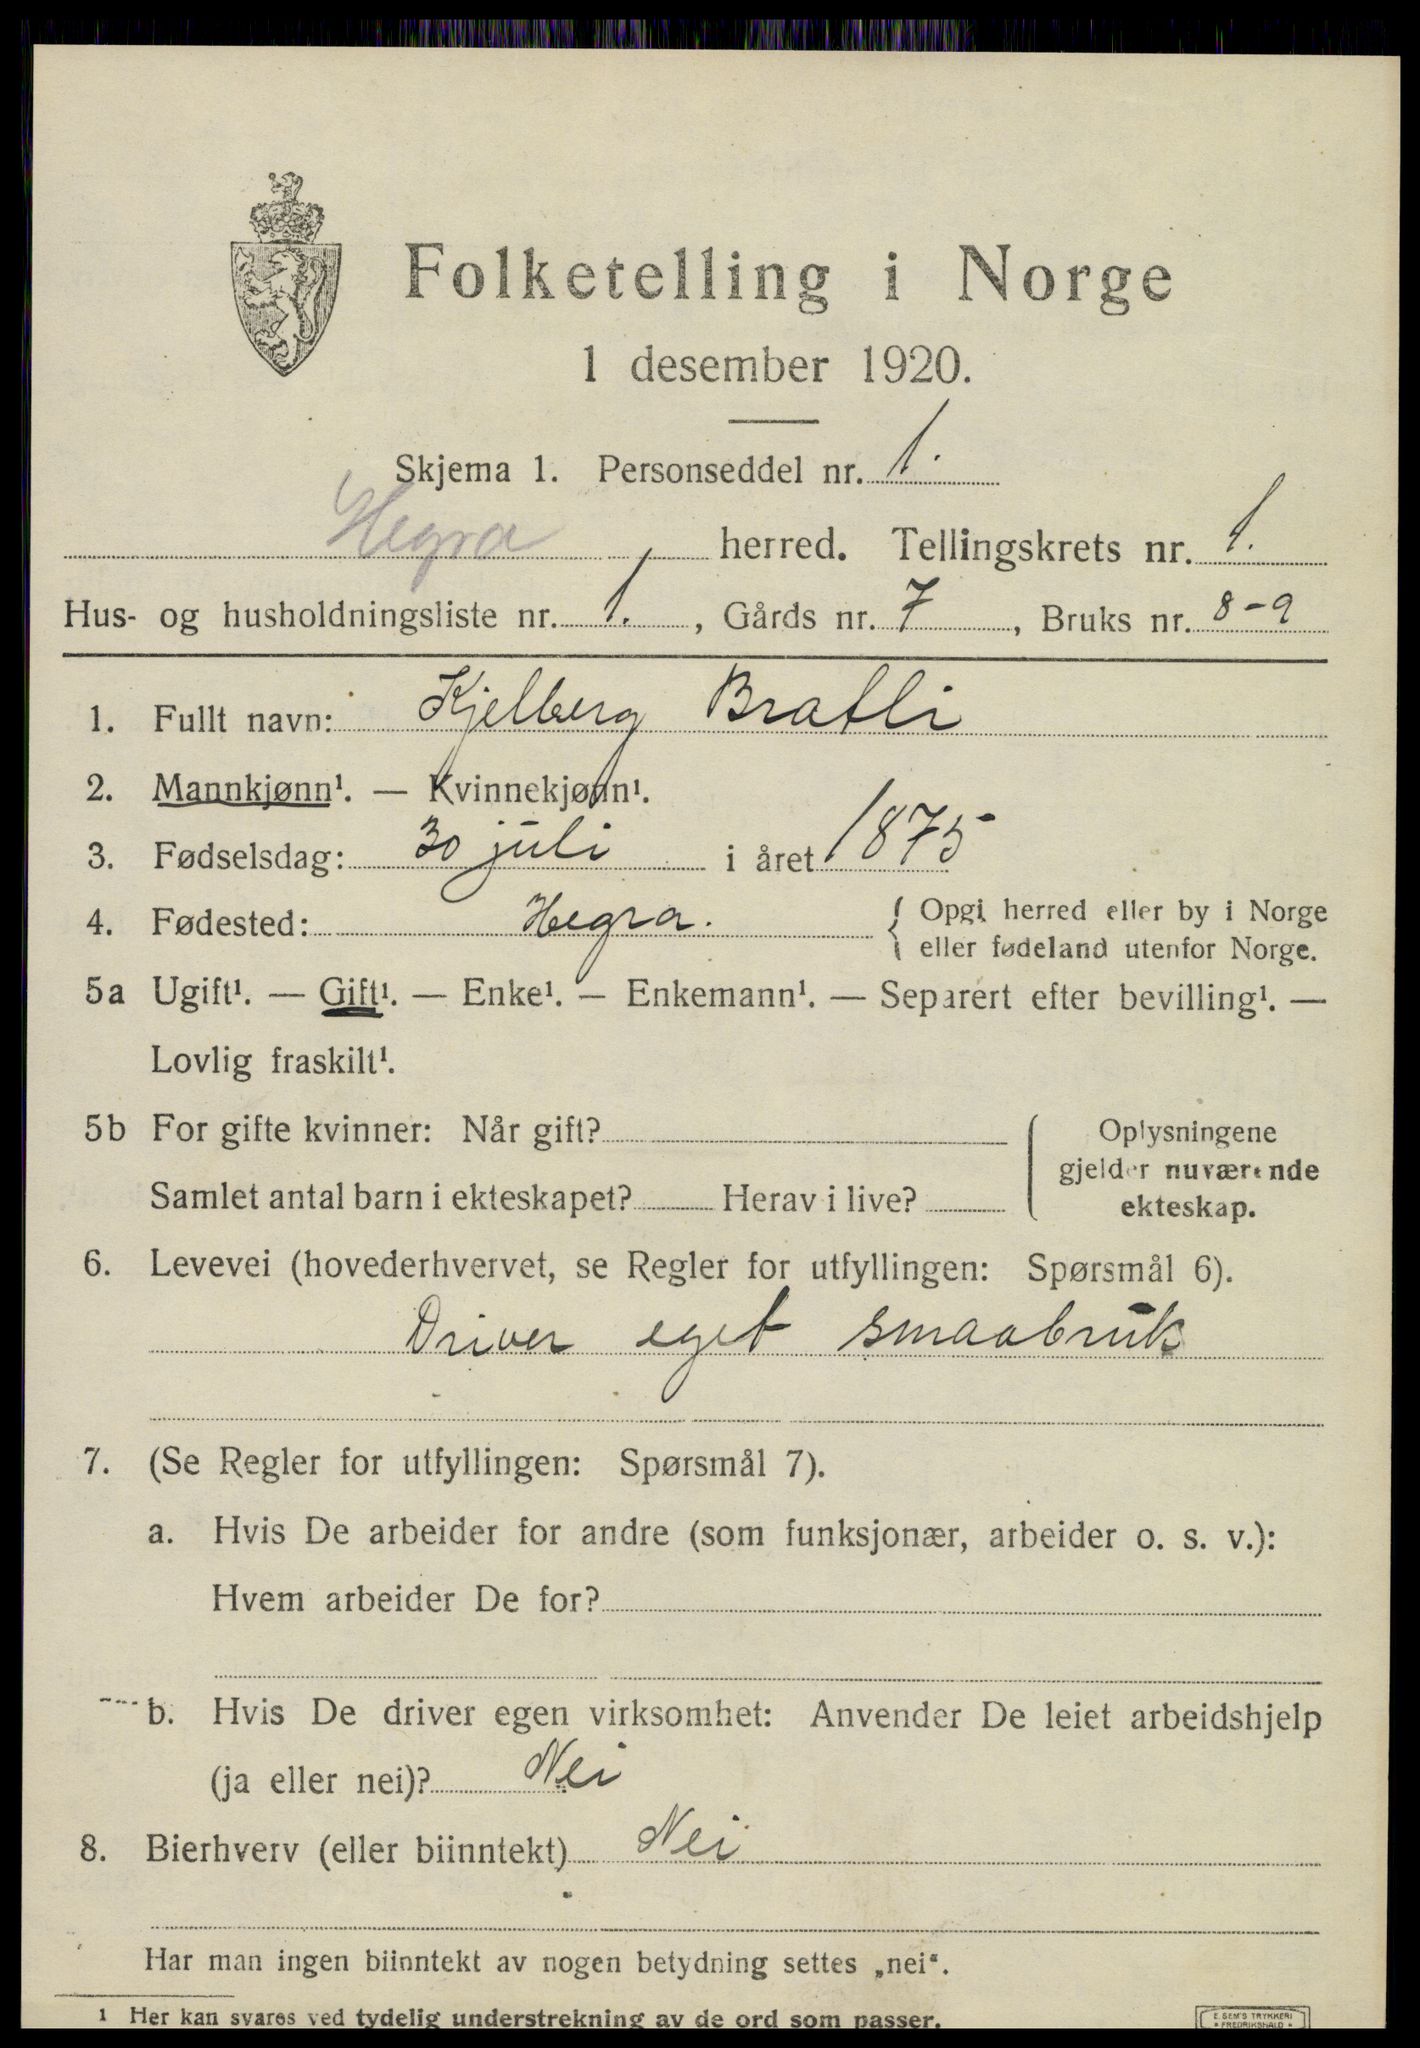 Folketelling i Norge
1 desember 1920.
Skjema 1. Personseddel nr. 1.
Hegra herred. Tellingskrets nr. 1.
Hus- og husholdningsliste nr. 1., Gårds nr. 7, Bruks nr. 8-9
1. Fullt navn: Kjelberg Bratli
2. Mannkjønn¹. — Kvinnekjønn¹.
3. Fødselsdag: 30 juli i året 1875
4. Fødested: Hegra. { Opgi herred eller by i Norge
eller fødeland utenfor Norge.
5a Ugift¹. — Gift¹. — Enke¹. — Enkemann¹. — Separert efter bevilling¹. —
Lovlig fraskilt¹.
5b For gifte kvinner: Når gift? Oplysningene
gjelder nuværende
Samlet antal barn i ekteskapet? Herav i live? ekteskap.
6. Levevei (hovederhvervet, se Regler for utfyllingen: Spørsmål 6).
Driver eget smaabruk
7. (Se Regler for utfyllingen: Spørsmål 7).
a. Hvis De arbeider for andre (som funksjonær, arbeider o. s. v.):
Hvem arbeider De for?
b. Hvis De driver egen virksomhet: Anvender De leiet arbeidshjelp
(ja eller nei)? Nei
8. Bierhverv (eller biinntekt) Nei
Har man ingen biinntekt av nogen betydning settes „nei“.
1 Her kan svares ved tydelig understrekning av de ord som passer.
E. SEM'S TRYKKERI
• FREDRIKSHALD •